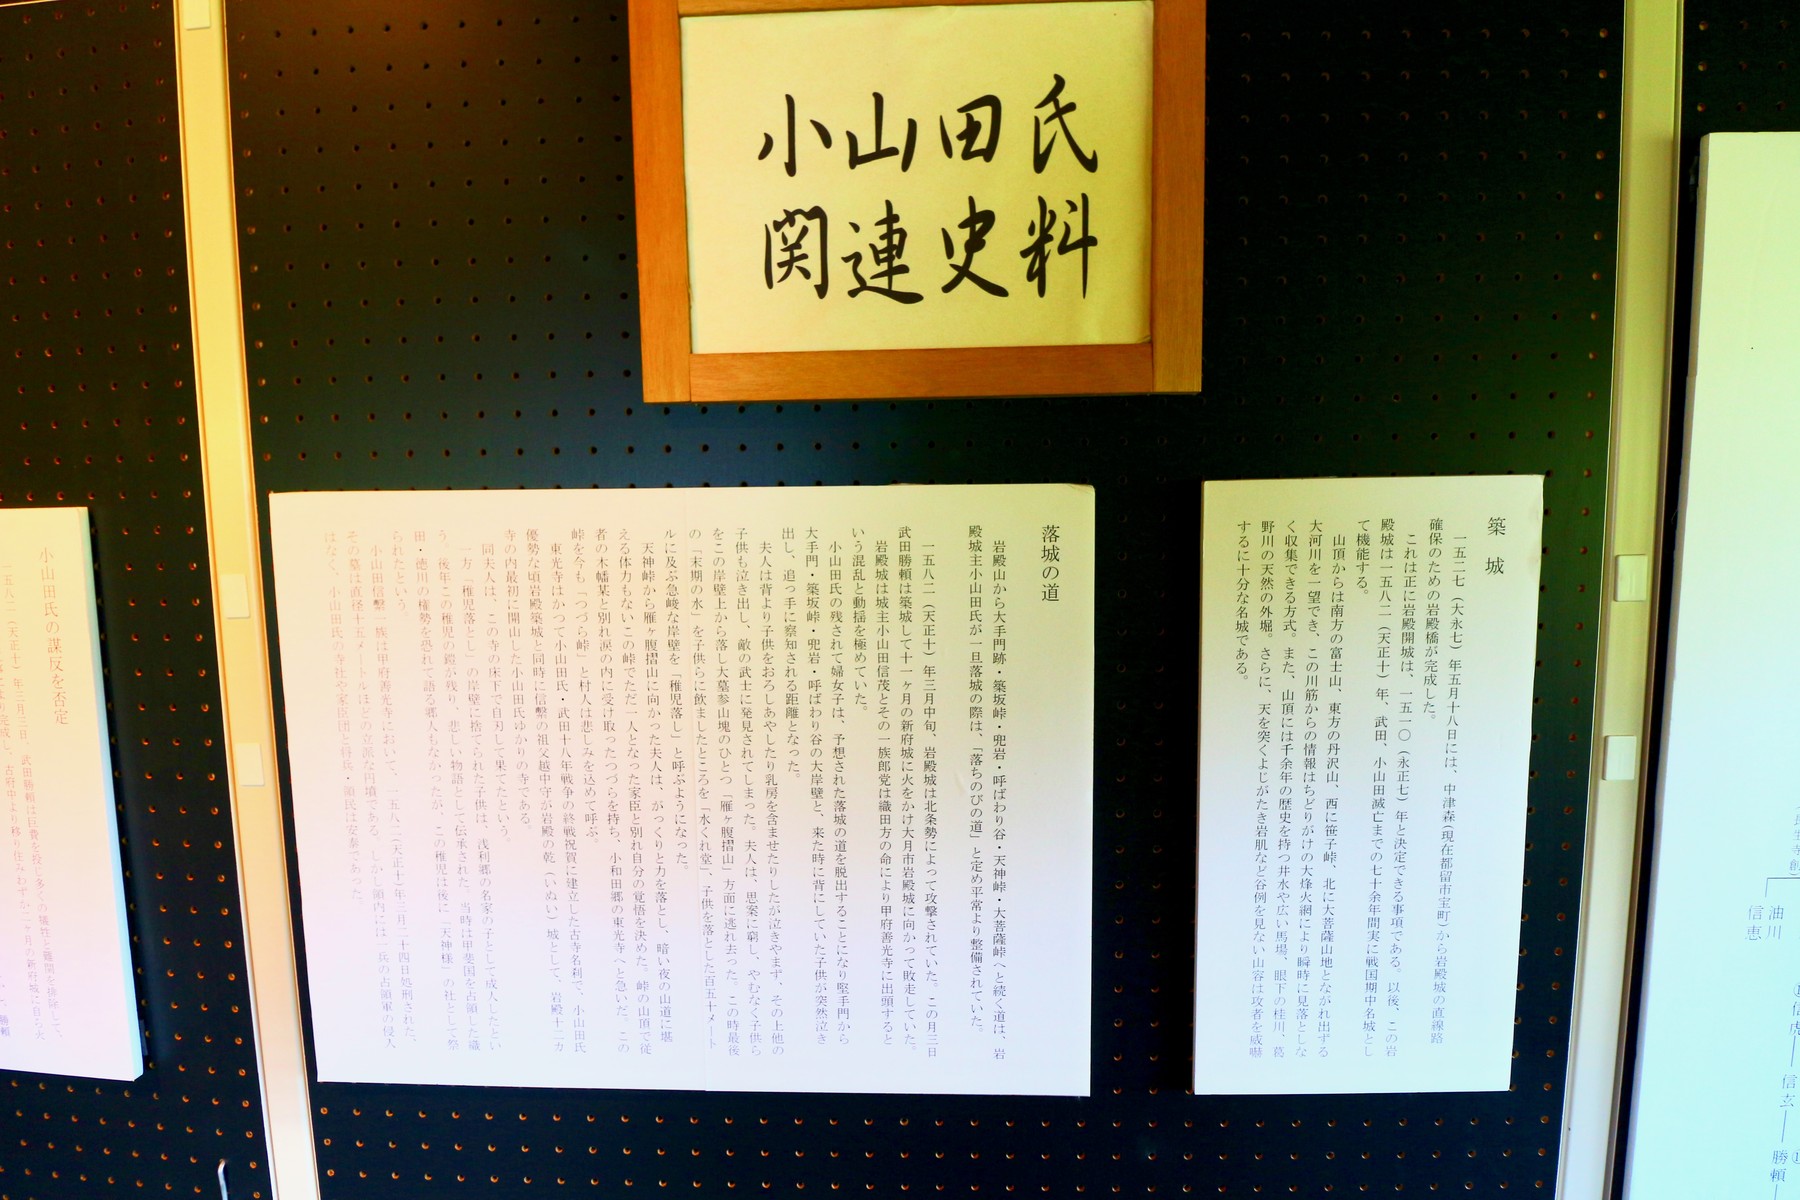 小山田氏
関連史料
築城
一五二七（大永七）年五月十八日には、中津森（現在都留市宝町）から岩殿城の直線路
確保のための岩殿橋が完成した。
これは正に岩殿開城は、一五一〇（永正七）年と決定できる事項である。以後、この岩
殿城は一五八二（天正十）年、武田、小山田滅亡までの七十余年間実に戦国期中名城とし
て機能する。
山頂からは南方の富士山、東方の丹沢山、西に笹子峠、北に大菩薩山地とながれ出ずる
大河川を一望でき、この川筋からの情報はちどりがけの大烽火網により瞬時に見落としな
く収集できる方式。また、山頂には千余年の歴史を持つ井水や広い馬場、眼下の桂川、葛
野川の天然の外堀。さらに、天を突くよじがたき岩肌など谷例を見ない山容は攻者を威嚇
するに十分な名城である。
落城の道
岩殿山から大手門跡・築坂峠・兜岩・呼ばわり谷・天神峠・大菩薩峠へと続く道は、岩
殿城主小山田氏が一旦落城の際は、「落ちのびの道」と定め平常より整備されていた。
一五八二（天正十）年三月中旬、岩殿城は北条勢によって攻撃されていた。この月三日
武田勝頼は築城して十一ヶ月の新府城に火をかけ大月市岩殿城に向かって敗走していた。
岩殿城は城主小山田信茂とその一族郎党は織田方の命により甲府善光寺に出頭すると
いう混乱と動揺を極めていた。
小山田氏の残されて婦女子は、予想された落城の道を脱出することになり堅手門から
大手門・築坂峠・兜岩・呼ばわり谷の大岸壁と、来た時に背にしていた子供が突然泣き
出し、追っ手に察知される距離となった。
夫人は背より子供をおろしあやしたり乳房を含ませたりしたが泣きやまず、その上他の
子供も泣き出し、敵の武士に発見されてしまった。夫人は、思案に窮し、やむなく子供ら
をこの岸壁上から落し大墓参山塊のひとつ「雁ヶ腹摺山」方面に逃れ去った。この時最後
の「末期の水」を子供らに飲ましたところを「水くれ堂」、子供を落とした百五十メート
ルに及ぶ急峻な岸壁を「稚児落し」と呼ぶようになった。
天神峠から雁ヶ腹摺山に向かった夫人は、がっくりと力を落とし、暗い夜の山道に堪
える体力もないこの峠でただ一人となった家臣と別れ自分の覚悟を決めた。峠の山頂で従
者の木幡某と別れ涙の内に受け取ったつづらを持ち、小和田郷の東光寺へと急いだ。この
峠を今も「つづら峠」と村人は悲しみを込めて呼ぶ。
東光寺はかつて小山田氏・武田十八年戦争の終戦祝賀に建立した古寺名刹で、小山田氏
優勢な頃岩殿築城と同時に信繋の祖父越中守が岩殿の乾（いぬい）城として、岩殿十二カ
寺の内最初に開山した小山田氏ゆかりの寺である。
同夫人は、この寺の床下で自刃して果てたという。
一方「稚児落とし」の岸壁に捨てられた子供は、浅利郷の名家の子として成人したとい
う。後年この稚児の鎧が残り、悲しい物語として伝承された。当時は甲斐国を占領した織
田・徳川の権勢を恐れて語る郷人もなかったが、この稚児は後に「天神様」の社として祭
られたという。
小山田信繋一族は甲府善光寺において、一五八二（天正十）年三月二十四日処刑された。
その墓は直径十五メートルほどの立派な円墳である。しかし領内には一兵の占領軍の侵入
はなく、小山田氏の寺社や家臣団と谷兵・領民は安泰であった。
小山田氏の謀反を否定
一五八二（天正十）年三月三日、武田勝頼は巨費を投じ多くの犠牲と難関を排除して、
完成し、古府中より移り住みわずか二ヶ月の新府城に自ら火
勝頼
油川
信恵
信虎
信玄
勝頼